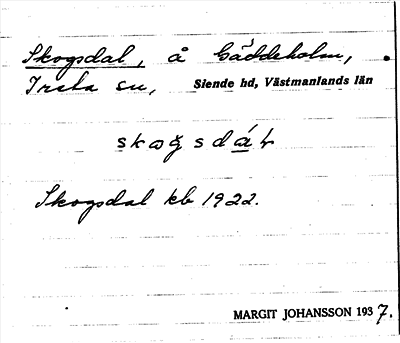 Skogsdal, å Gäddeholm,
Irsta sn, Siende hd, Västmanlands län
skogsdál
Skogsdal kb 1922.
MARGIT JOHANSSON 1937.